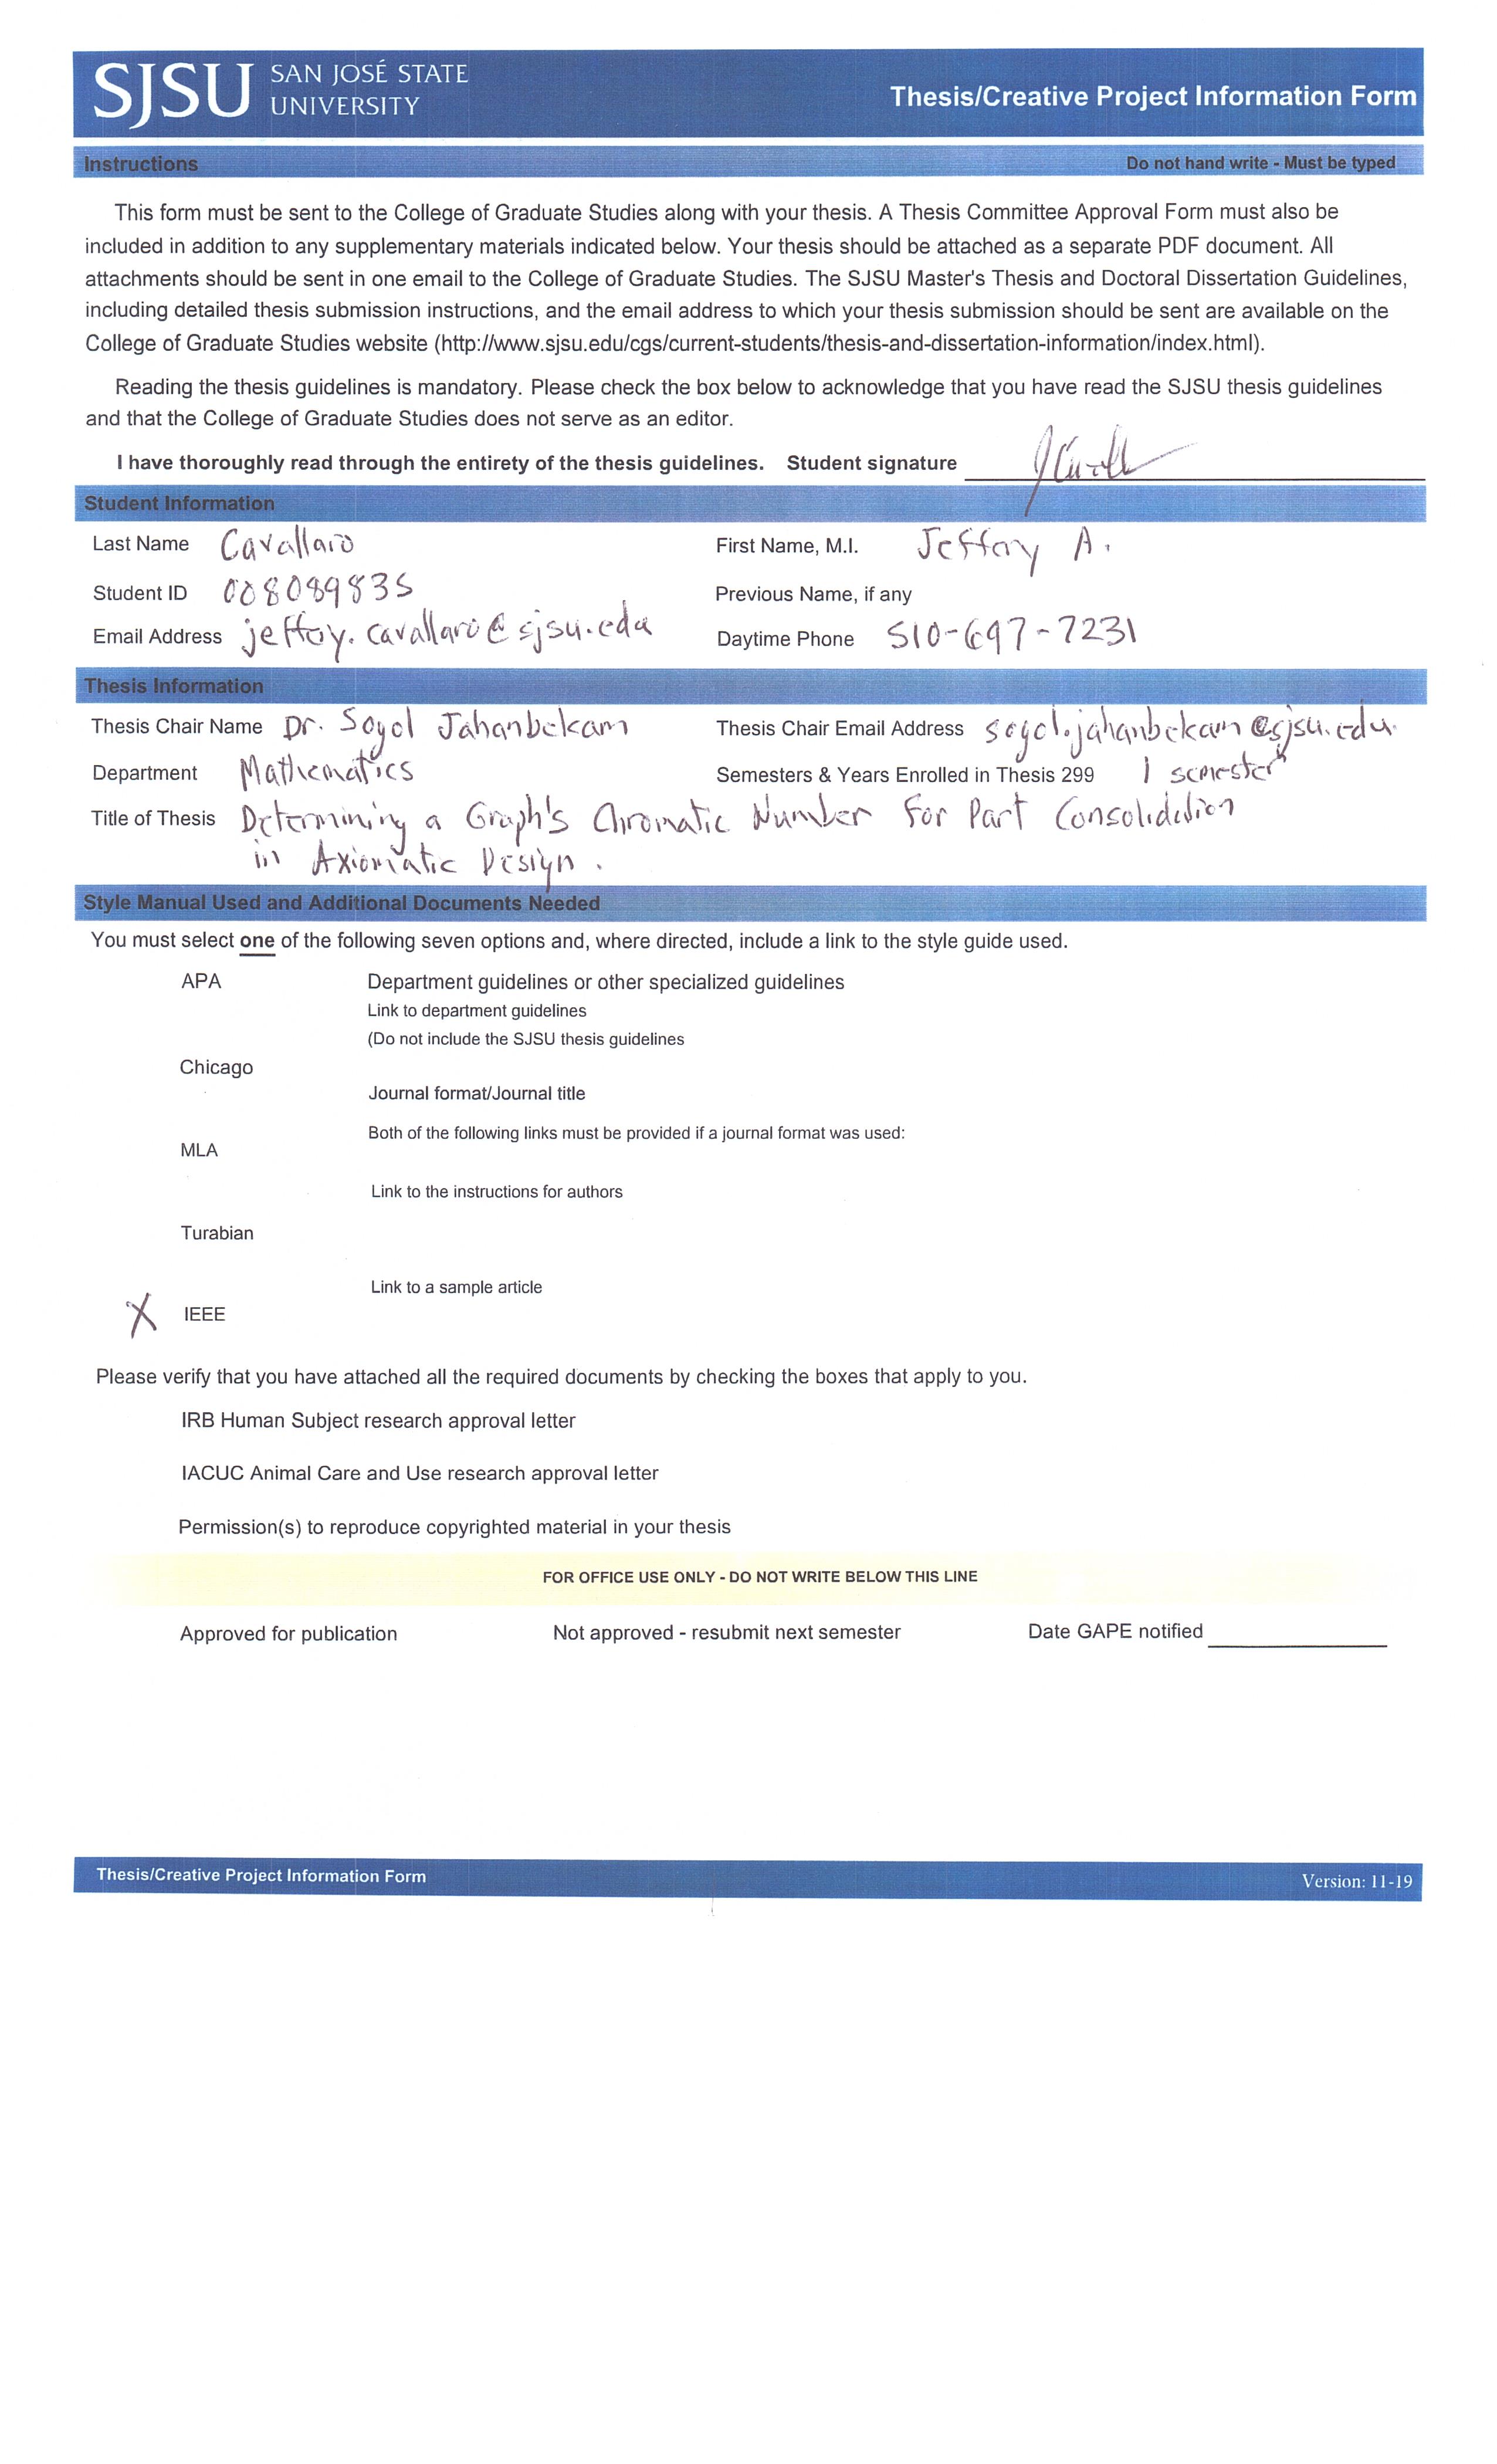 SJSU SAN JOSÉ STATE
UNIVERSITY
Thesis/Creative Project Information Form
Instructions Do not hand write - Must be typed
This form must be sent to the College of Graduate Studies along with your thesis. A Thesis Committee Approval Form must also be
included in addition to any supplementary materials indicated below. Your thesis should be attached as a separate PDF document. All
attachments should be sent in one email to the College of Graduate Studies. The SJSU Master's Thesis and Doctoral Dissertation Guidelines,
including detailed thesis submission instructions, and the email address to which your thesis submission should be sent are available on the
College of Graduate Studies website (http://www.sjsu.edu/cgs/current-students/thesis-and-dissertation-information/index.html).
Reading the thesis guidelines is mandatory. Please check the box below to acknowledge that you have read the SJSU thesis guidelines
and that the College of Graduate Studies does not serve as an editor.
I have thoroughly read through the entirety of the thesis guidelines. Student signature
Student Information
Last Name Cavallaro First Name, M.I. Jeffery A.
Student ID 008089835 Previous Name, if any
Email Address jeffery.cavallaro@sjsu.edu Daytime Phone 510-697-7231
Thesis Information
Thesis Chair Name Dr. Sogol Jahanbekam Thesis Chair Email Address sogol.jahanbekam@sjsu.edu
Department Mathematics Semesters & Years Enrolled in Thesis 299 1 semester
Title of Thesis Determining a Graph's Chromatic Number for Part Consolidation
in Axiomatic Design.
Style Manual Used and Additional Documents Needed
You must select one of the following seven options and, where directed, include a link to the style guide used.
APA Department guidelines or other specialized guidelines
Link to department guidelines
(Do not include the SJSU thesis guidelines
Chicago
Journal format/Journal title
Both of the following links must be provided if a journal format was used:
MLA
Link to the instructions for authors
Turabian
Link to a sample article
X IEEE
Please verify that you have attached all the required documents by checking the boxes that apply to you.
IRB Human Subject research approval letter
IACUC Animal Care and Use research approval letter
Permission(s) to reproduce copyrighted material in your thesis
FOR OFFICE USE ONLY - DO NOT WRITE BELOW THIS LINE
Approved for publication Not approved - resubmit next semester Date GAPE notified
Thesis/Creative Project Information Form Version: 11-19